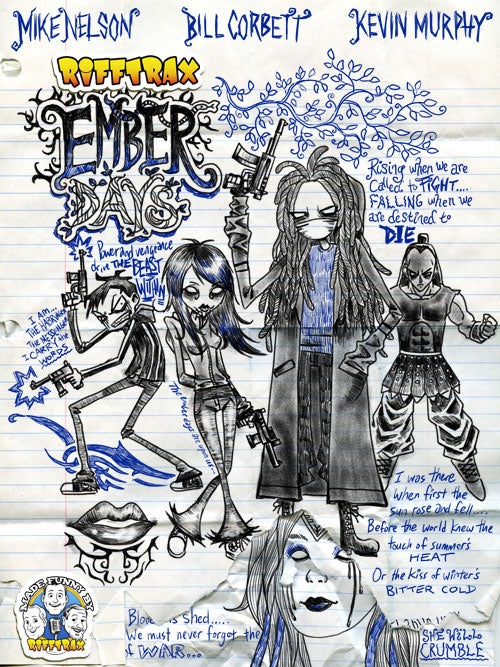 MIKE NELSON
BILL CORBETT
KEVIN MURPHY
RiffTRAX
EMBER
DAYS
Rising when we are
called to FIGHT....
FALLING when we
are destined to
DIE
Power and vengeance
drive THE BEAST
WITHIN
I AM...
THE
THE MESSENGER
I CARRY the
WORDS
The ember days are upon us..
I was there
when first the
sun rose and fell....
Before the world knew the
touch of summer's
HEAT
Or the kiss of winter's
BITTER COLD
MADE FUNNY BY
RIFFTRAX
is shed.....
We must never forget the
of WAR...
CRUMBLE